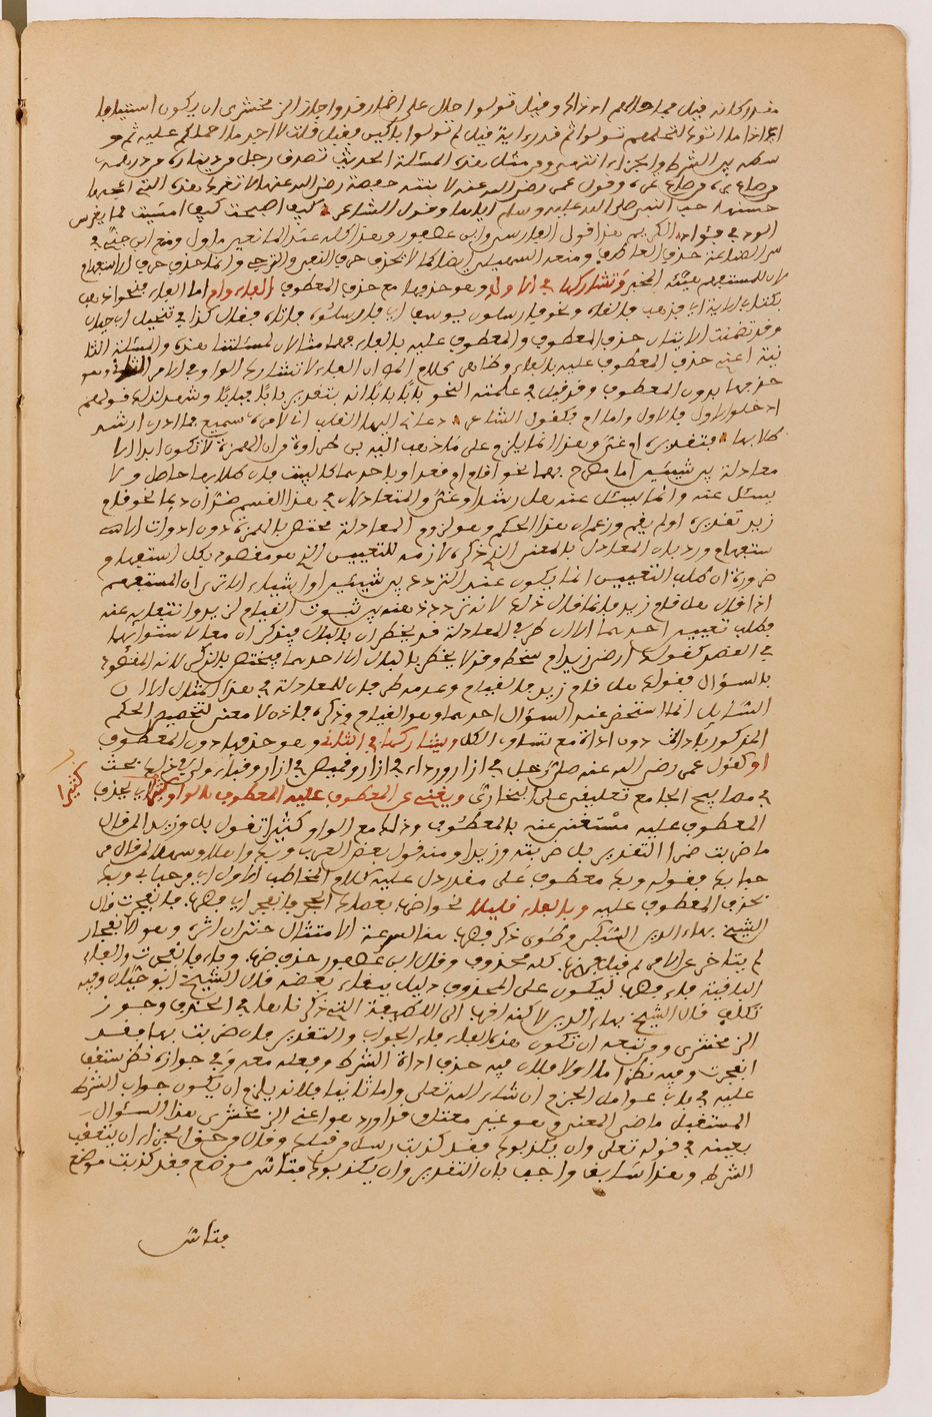 مقدرا كانه قيل فما حالكم اذ ذاك وقيل تولوا حال على اضمار قد واجاز الزمخشري ان يكون استينافا
اي اذا ما اتوك لتحملهم تولوا ثم قدر انه قيل لم تولوا باكين فقيل قلت لا اجد ما احملكم عليه ثم و
سط بين الشرط والجزاء انتهى ومن مثل هذه المسئلة الحديث تصدق رجل من ديناره من درهمه
من صاع بره من صاع تمره وقول عمر رضي الله عنه لابنته حفصة رضي الله عنها لا تغرنك هذه التي اعجبها
حسنها حب النبي صلى الله عليه وسلم اياها وقول الشاعر كيف اصبحت كيف امسيت مما يغرس
الود في فؤاد الكريم هذا قول الفارسي وابن عصفور وهذا كله عند المانعين ماول ومنع ابن جني في
سر الصناعة حذف العاطف ومنعه السهيلي ايضا كما لا يحذف حرف النفي والترجي وانما حذف حرف الاستفهام
لان للمستفهم هيئة المخبر وتشاركها في الاول وهو حذفها مع حذف المعطوف الفاء وام اما الفاء فنحو اذهب
بكتابي الاية اي فذهب فالقاه ونحو فارسلون يوسف اي فارسلوه فاتاه فقال كذا في تخيل ابن حيان
وقد تضمنت الايتان حذف المعطوف والمعطوف عليه بالفاء فهما مثالان لمسئلتنا هذه والمسئلة الثا
نية اعني حذف المعطوف عليه بالفاء وظاهر كلام المص ان الفاء لا تشارك الواو في الامر الثاني وهو
حذفها بدون المعطوف وقد قيل في علمته النحو بابا بابا انه بتقدير بابا فبابا وشهد لذلك قولهم
ادخلوا الاول فالاول واما ام فكقول الشاعر دعاني اليها القلب اني لامره سميع فما ادري ارشد
طلابها بتقدير ام غي وهذا انما يلزم على مذهب اليه من ان الهمزة لا تكون ابدا الا
معادلة بين شيئين اما مصرح بهما نحو اقام ام قعد او باحدهما كالبيت فان طلابها حاصل ولا
يسئل عنه وانما يسئل عنه هل رشد او غي والمتعادلان في هذا القسم ضدان ربما نحو قام
زيد تقديره ام لم يقم وزعم ان هذا الحكم وهو لزوم المعادلة مختص بالهمزة دون ادوات الاس
ستفهام ورد بان المعادل بالمعنى الذي ذكره لازم للتعيين الذي هو مقصود بكل استفهام و
ضرورة ان طلب التعيين انما يكون عند التردد بين شيئين او اشياء الا ترى ان المستفهم
اذا قال هل قام زيد فانما قال ذلك لانه تردد ذهنه بين ثبوت القيام لزيد وانتفايه عنه
فطلب تعيين احدهما الا ان طرفي المعادلة قد يخطران بالبال فيذكران معا لاستوائهما
في القصد كقولك ارضي زيد ام سخط وقد لا يخطر بالبال الا احدهما فيختص بالذكر لانه المقصود
بالسؤال فقولك هل قام زيد فالقيام وعدمه طرفان للمعادلة في هذا المثال الا ان
السائل انما استحضر عند السؤال احدهما وهو القيام وذكره فاذن لا معنى لتخصيص الحكم
المذكور باداة دون اداة مع تساوي الكل ويشاركها في الثاني وهو حذفها دون المعطوف
او كقول عمر رضي الله عنه صلى رجل في ازار ورداء في ازار وقميص في ازار وقباء ولي في ذلك بحث
في مصابيح الجامع تعليقي على البخاري ويغني عن المعطوف عليه المعطوف بالواو كثيرا اي يحذف
كثيرا
المعطوف عليه مستغنى عنه بالمعطوف وذلك مع الواو كثيرا تقول بل وزيدا لمن قال
ما ضربت عمرا التقدير بل ضربته وزيدا ومنه قول بعض العرب وبك واهلا وسهلا لمن قال مر
حبا بك فقوله وبك معطوف على مقدر دل عليه كلام المخاطب الاول اي مرحبا بي وبك
بحذف المعطوف عليه وبالفاء قليلا نحو اضرب بعصاك الحجر فانفجرت اي فضرب فانفجرت قال
الشيخ بهاء الدين السبكي وطوي ذكر فضرب لسرعة الامتثال حتى ان اثره وهو الانفجار
لم يتاخر عن الامر ثم قيل فضرب كله محذوف وقال ابن عصفور حذف ضرب وفاء فانفجرت والفاء
الباقية فاء فضرب ليكون على المحذوف دليل ببقاء بعضه قال الشيخ ابو حيان وفيه
تكلف قال الشيخ بهاء الدين لا كنه اقرب الى اللطيفة التي ذكرناها في الحذف وجوز
الزمخشري ومن تبعه ان تكون هذه الفاء فاء الجواب والتقدير فان ضربت بها فقد
انفجرت وفيه نظر اما اولا فلان فيه حذف اداة الشرط وفعله معه وفي جوازه نظر ستقف
عليه في باب عوامل الجزم ان شاء الله تعلى واما ثانيا فلانه يلزم ان يكون جواب الشرط
المستقبل ماضي المعنى وهو غير معتاد قد اورد هو اعني الزمخشري هذا السؤال
بعينه في قوله تعلى وان يكذبوك فقد كذبت رسل من قبلك وقال من حق الجزاء ان يتعقب
الشرط وهذا سابق واجب بان التقدير وان يكذبوك فتاس موضع فقد كذبت موضع
فتاس